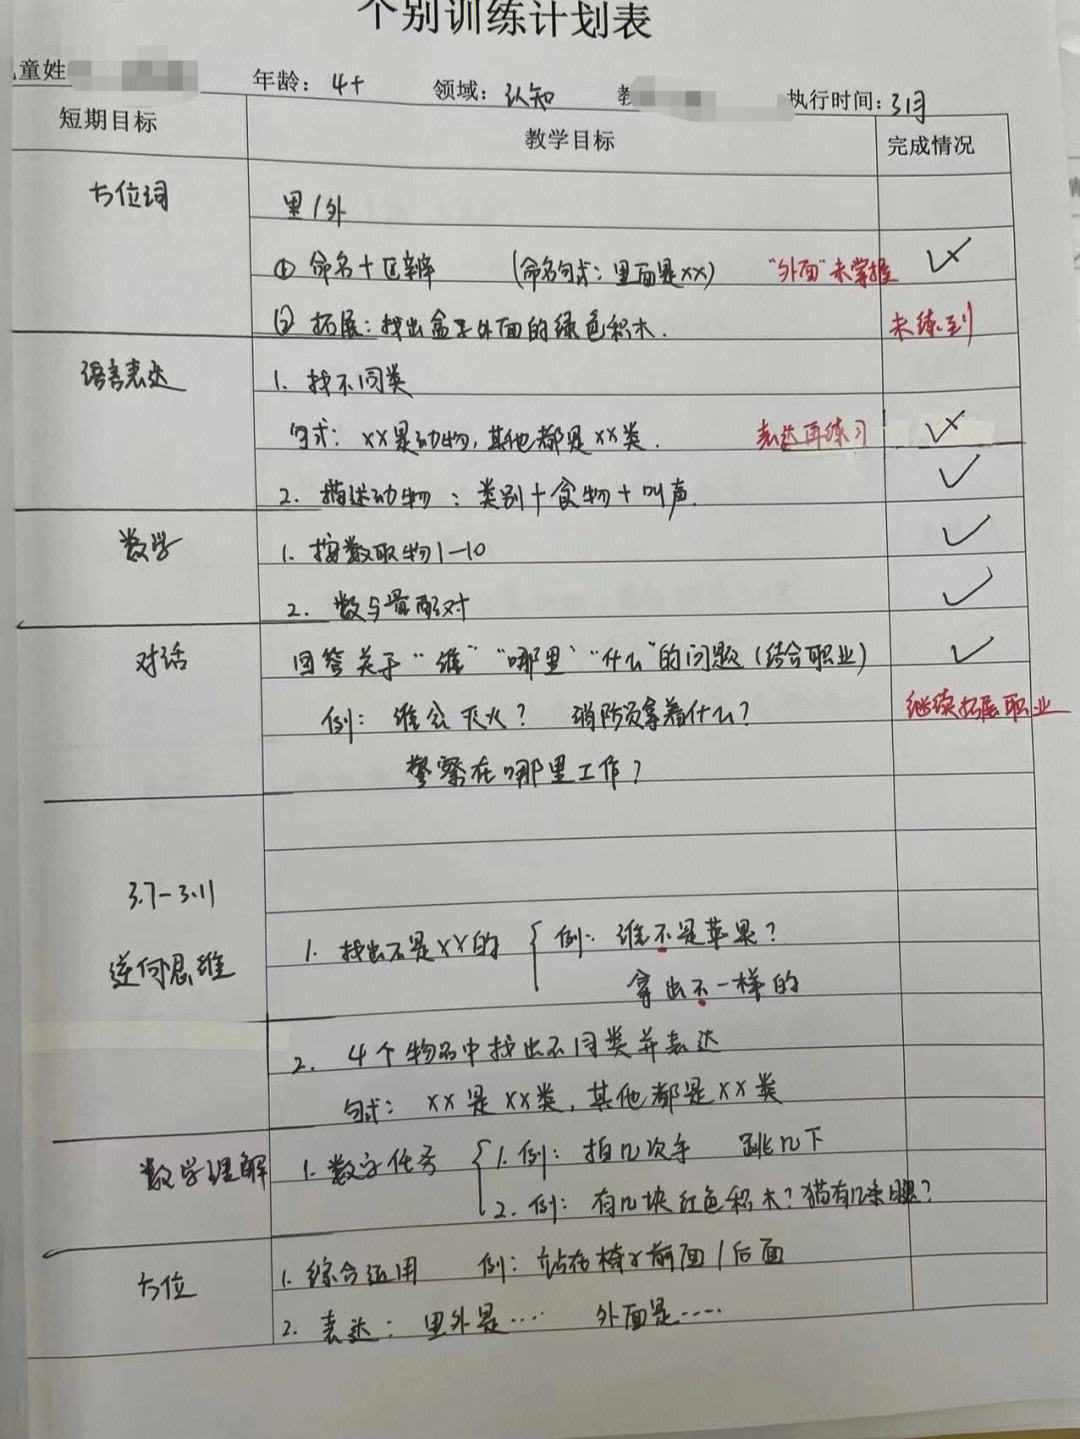 个别训练计划表
儿童姓 年龄：4+ 领域：认知 教 执行时间：3月
短期目标 教学目标 完成情况
方位词 里/外
① 命名+区辨 （命名句式：里面是xx） “外面”未掌握
② 拓展：找出盒子外面的绿色积木. 未练到
语言表达 1. 找不同类
句式：xx是动物，其他都是xx类. 表达再练习
2. 描述动物：类别+食物+叫声.
数学 1. 按数取物1-10
2. 数与量配对
对话 回答关于“谁”“哪里”“什么”的问题（结合职业）
例：谁会灭火？ 消防员拿着什么？ 继续拓展职业
警察在哪里工作？
3.7-3.11
逆向思维 1. 找出不是xx的 例：谁不是苹果？
拿出不一样的
2. 4个物品中找出不同类并表达
句式：xx是xx类，其他都是xx类
数学理解 1. 数字任务 1. 例：拍几次手 跳几下
2. 例：有几块红色积木？猫有几条腿？
方位 1. 综合运用 例：站在椅子前面/后面
2. 表达：里外是…… 外面是……